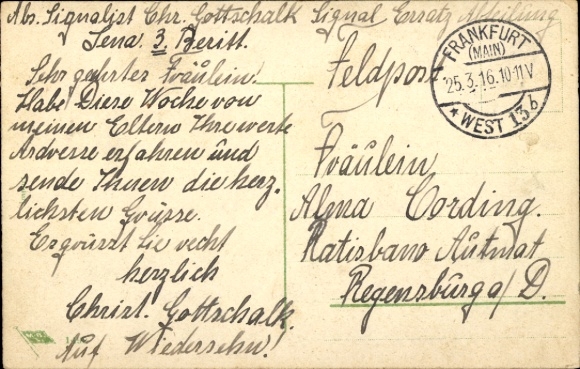 Abs. Signalist Chr. Gottschalk Signal Ersatz Abteilung
Jena 3. Beritt.
Feldpost
FRANKFURT
(MAIN)
25.3.16.10-11V
* WEST 13 b
Sehr geehrtes Fräulein.
Habe Diese Woche von
meinen Eltern Ihre werte
Adresse erfahren und
sende Ihnen die herz.
lichsten Grüsse.
Es grüsst Sie recht
herzlich
Christ. Gottschalk.
Auf Wiedersehn!
Fräulein
Alma Cording.
Ratisbana Automat
Regensburg a/D.